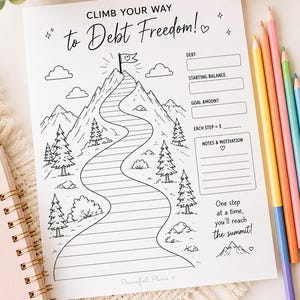 CLIMB YOUR WAY
to Debt Freedom!
DEBT:
STARTING BALANCE:
GOAL AMOUNT:
EACH STEP = $
NOTES & MOTIVATION
One step
at a time,
you'll reach
the summit!
Peaceful Plans